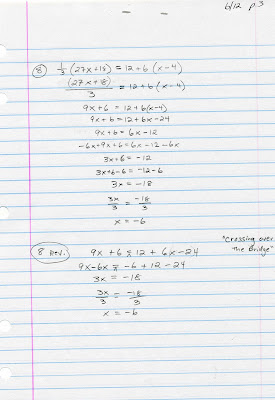 6/12 p.3
⑧ 1/3 (27x+18) = 12+6 (x-4)
(27x+18)/3 = 12+6 (x-4)
9x+6 = 12+6(x-4)
9x+6 = 12+6x-24
9x+6 = 6x-12
-6x+9x+6 = 6x-12-6x
3x+6 = -12
3x+6-6 = -12-6
3x = -18
3x/3 = -18/3
x = -6
"Crossing over
the Bridge"
8 Rev. 9x+6 = 12+6x-24
9x-6x = -6+12-24
3x = -18
3x/3 = -18/3
x = -6